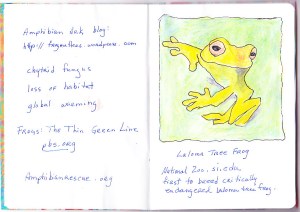 Amphibian Ark blog:
http://frogmatters.wordpress.com
chytrid fungus
loss of habitat
global warming
Frogs: The Thin Green Line
pbs.org
Amphibianrescue.org
Laloma Tree Frog
National Zoo. si.edu
first to breed critically
endangered laloma tree frog.